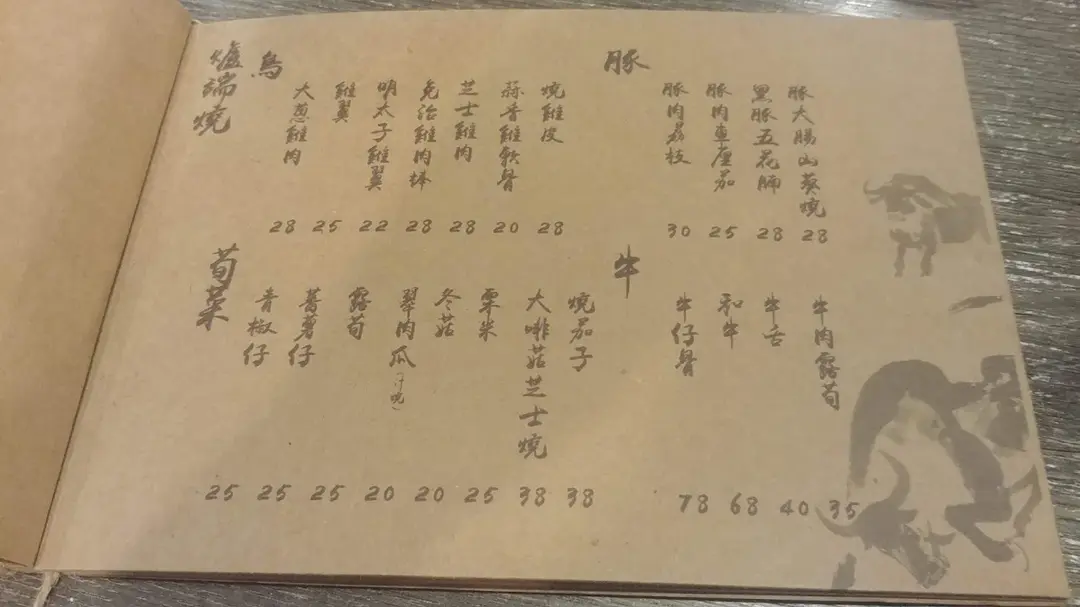 爐端燒
鳥
大葱雞肉
雞翼
明太子雞翼
免治雞肉棒
芝士雞肉
蒜香雞軟骨
燒雞皮
28 25 22 28 28 20 28
豚
豚肉荔枝
豚肉車厘茄
黑豚五花腩
豚大腸山葵燒
30 25 28 28
荀菜
青椒仔
露荀
翠肉瓜
冬菇
粟米
大啡菇芝士燒
燒茄子
25 25 25 20 20 25 38 38
牛
牛仔骨
和牛
牛舌
牛肉露荀
78 68 40 35